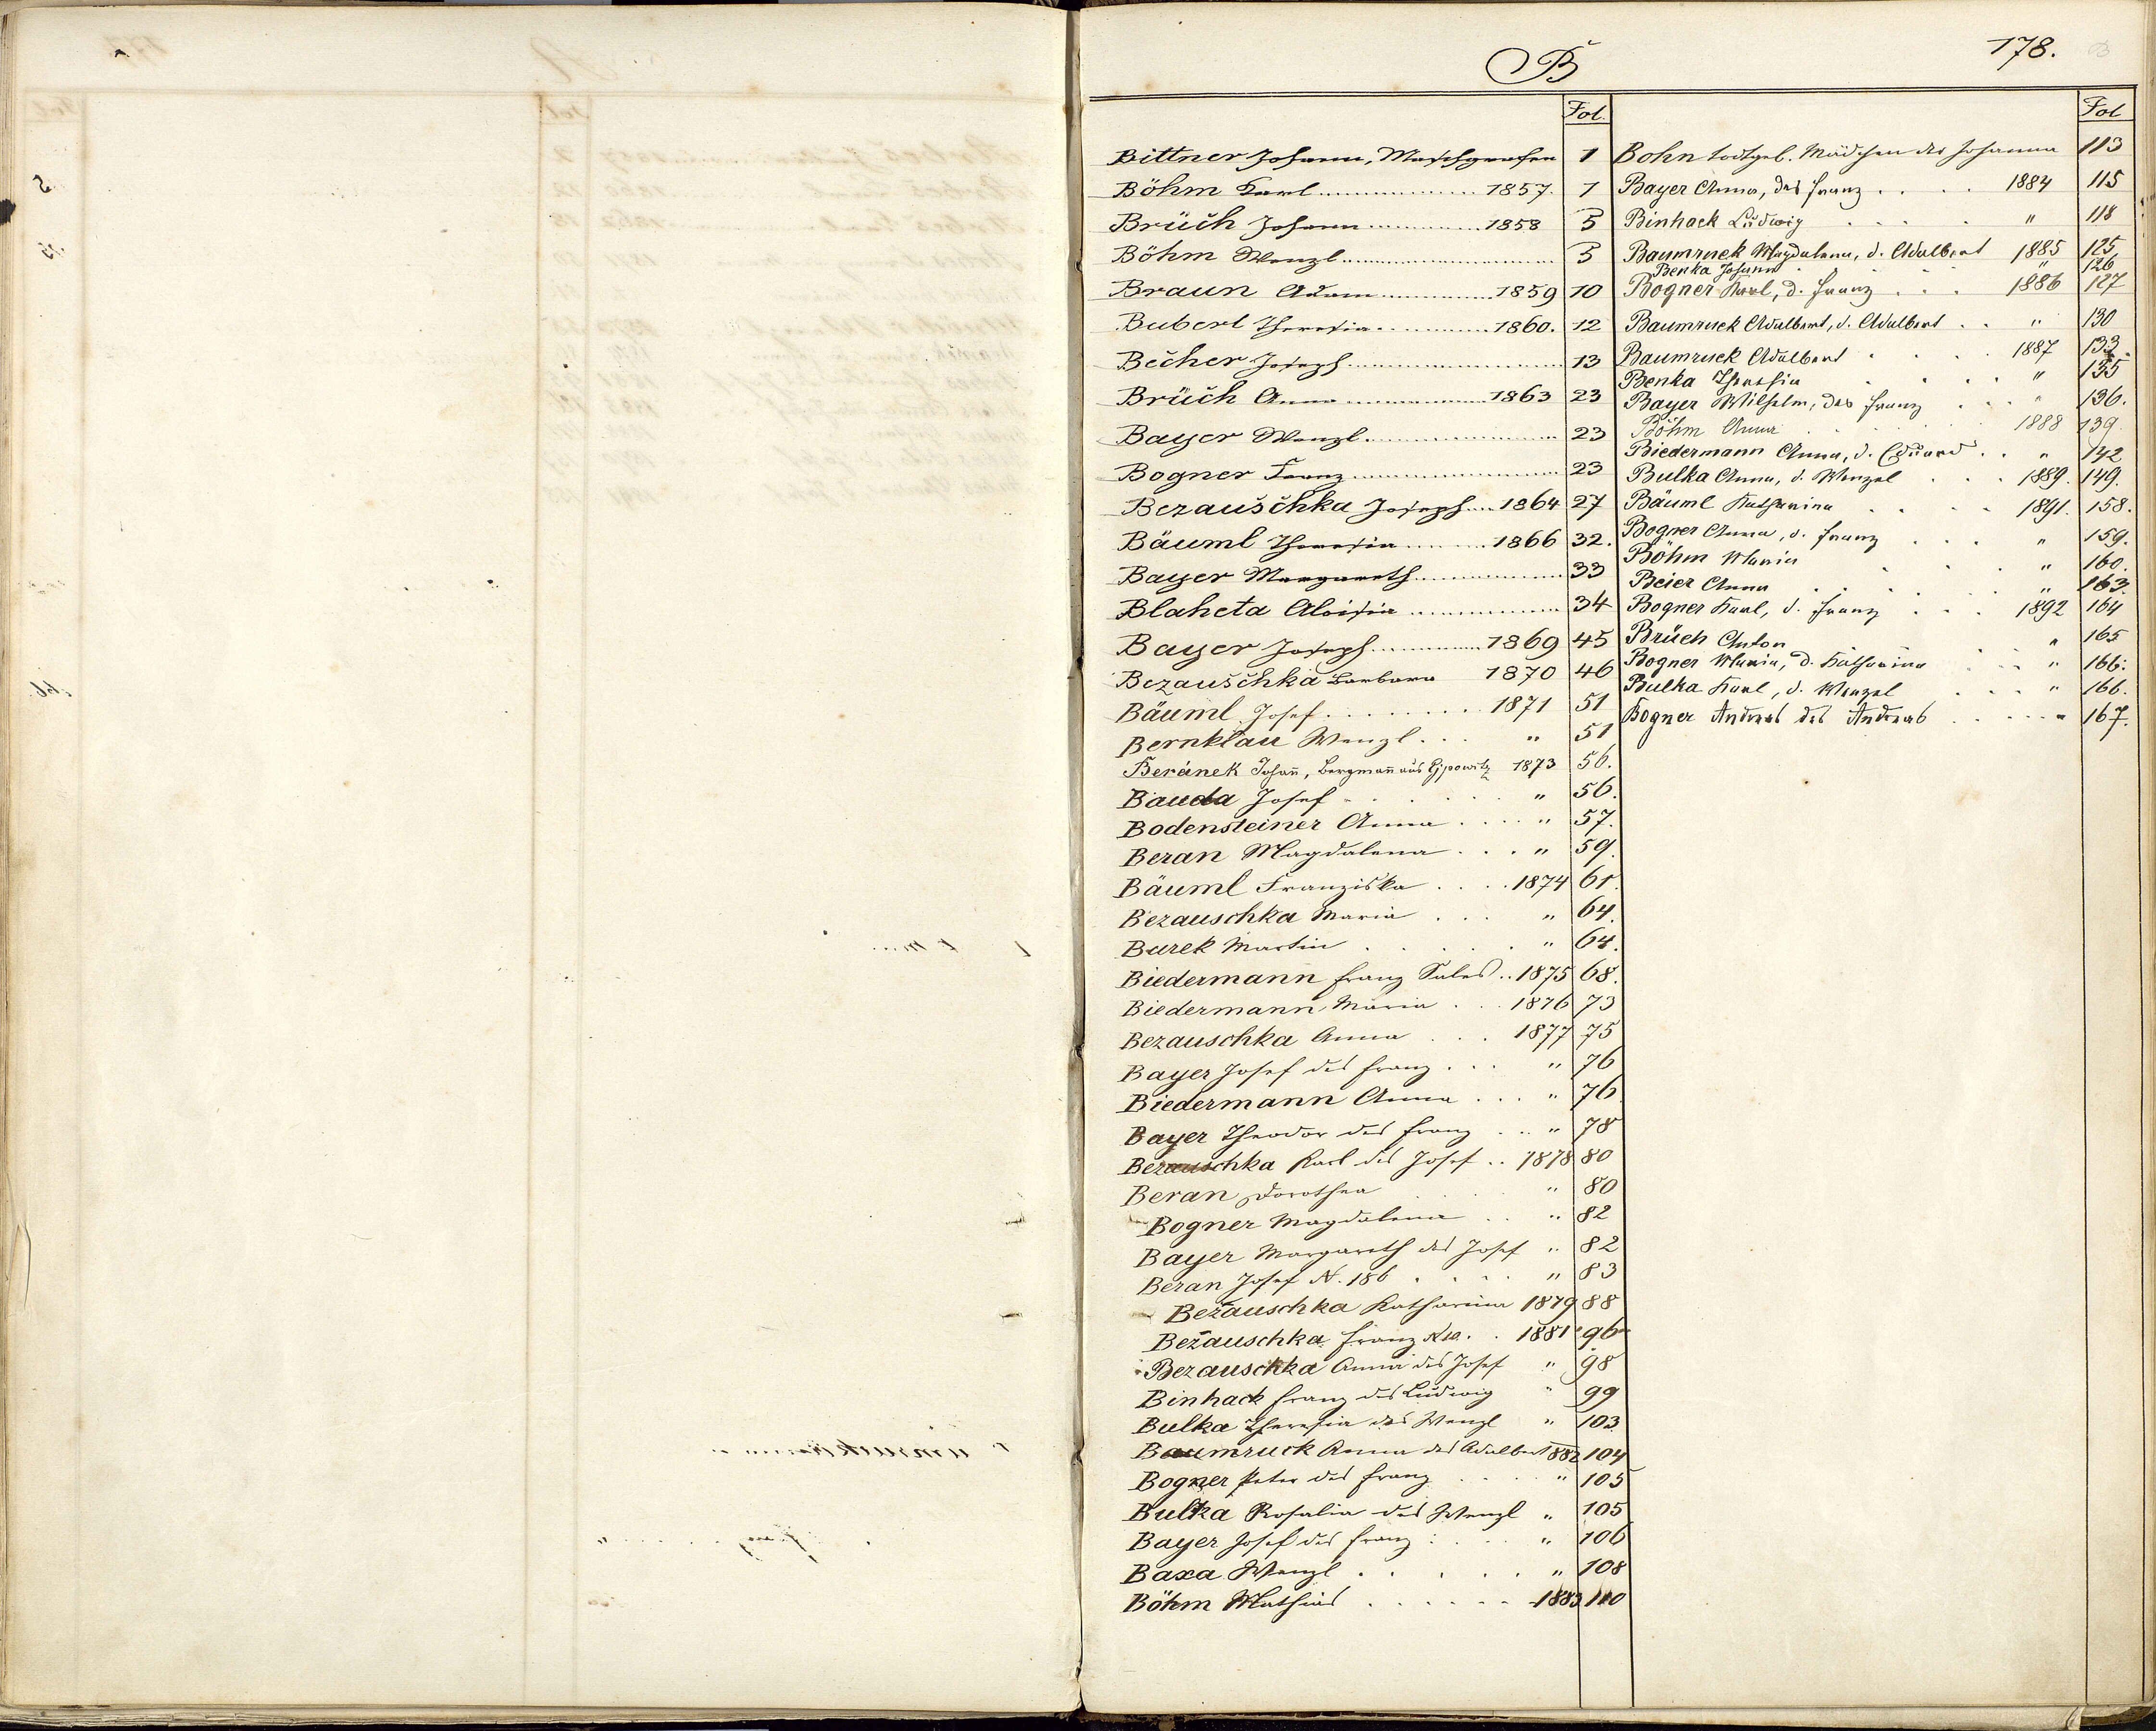 178.
B
Fol.
Bittner Johann,
1
Böhm Karl 1857. 1
Brüch Johann 1858 5
Böhm Wenzl 5
Braun Adam 1859 10
Bubert Theresia 1860. 12
Becher Joseph 13
Brüch Anna 1863 23
Bayer Wenzl 23
Bogner Franz 23
Bezauschka Joseph 1864 27
Bäuml Theresia 1866 32.
Bayer Margareth 33
Blaheta Aloisia 34
Bayer Joseph 1869 45
Bezauschka Barbara 1870 46
Bäuml Josef 1871 51
Bernklau Wenzl " 51
Beránek Johañ, Bergmañ aus 1873 56.
Bauda Josef " 56.
Bodensteiner Anna " 57.
Beran Magdalena " 59.
Bäuml Franziska 1874 61.
Bezauschka Maria " 64.
Burek Martin " 64.
Biedermann Franz Sales 1875 68.
Biedermann Maria 1876 73
Bezauschka Anna 1877 75
Bayer Josef des Franz " 76
Biedermann Anna " 76
Bayer Theodor des Franz " 78
Bezauschka Karl des Josef 1878 80
Beran Dorothea " 80
Bogner Magdalena " 82
Bayer Margareth des Josef " 82
Beran Josef N. 186 " 83
Bezauschka Katharina 1879 88
Bezauschka Franz N 10. 1881 96
Bezauschka Anna des Josef " 98
Binhack Franz des Ludwig " 99
Bulka Theresia des Wenzl " 103
Baumruck Anna des Adalbert 1882 104
Bogner Peter des Franz " 105
Bulka Rosalia des Wenzl " 105
Bayer Josef des Franz " 106
Baxa Wenzl " 108
Böhm Mathias 1883 110
Fol
Bohn todtgeb. Mädchen der Johanna 113
Bayer Anna, des Franz 1884 115
Binhack Ludwig " 118
Baumruck Magdalena, d. Adalbert 1885 125
Benka Johann " 126
Bogner Karl, d. Franz 1886 127
Baumruck Adalbert, d. Adalbert " 130
Baumruck Adalbert 1887 133
Benka Theresia " 135
Bayer Wilhelm, des Franz " 136.
Böhm Anna 1888 139
Biedermann Anna, d. Eduard " 142
Bulka Anna, d. Wenzel 1889. 149.
Bäuml Katharina 1891. 158.
Bogner Anna, d. Franz " 159.
Böhm Maria " 160.
Beier Anna " 163.
Bogner Karl, d. Franz 1892 164
Brüch Anton " 165
Bogner Maria, d. Katharina " 166.
Bulka Karl, d. Wenzel " 166.
Bogner Andreas des Andreas " 167.